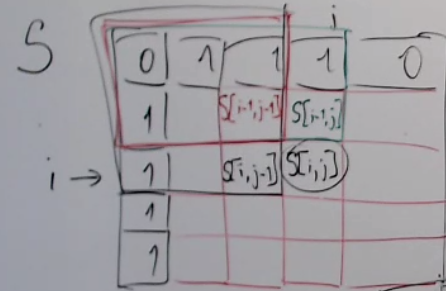 S j
0 1 1 1 0
1 S[i-1,j-1] S[i-1,j]
i → 1 S[i,j-1] S[i,j]
1
1